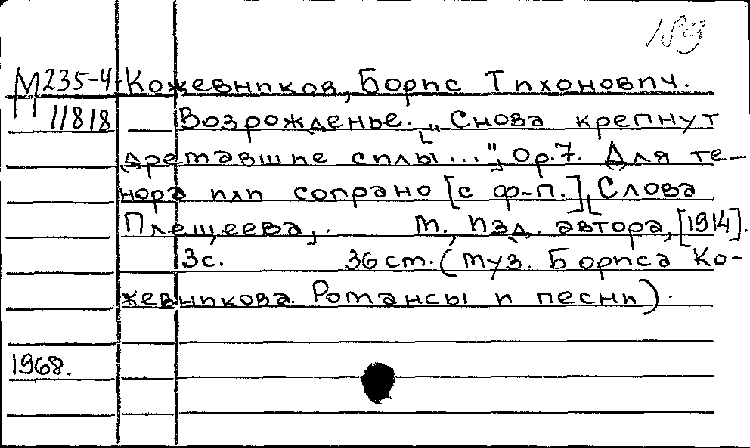 189
М235-4 Кожевников, Борис Тихонович.
11818 Возрожденье. ["Снова крепнут
дремавшие силы..."], Ор.7. Для те-
нора или сопрано [с ф-п.], Слова
Плещеева, . М., Изд. автора, [1914].
3с. 36 cm. (Муз. Бориса Ко-
жевникова. Романсы и песни).
1968.